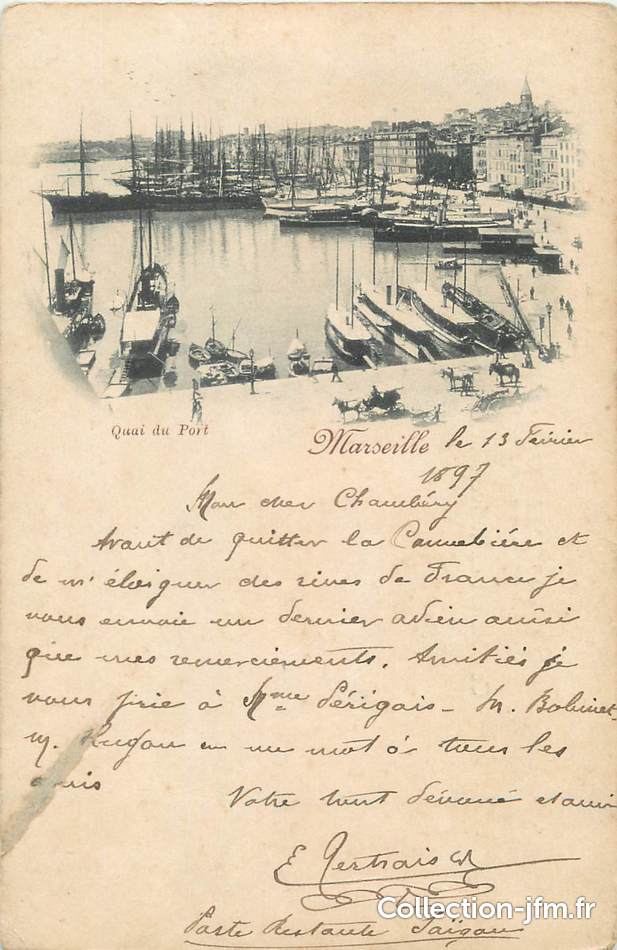 Quai du Port
Marseille le 13 Février
1897
Mon cher Chambéry
Avant de quitter la Cannebière et
de m'éloigner des rives de France je
vous envoie un dernier adieu ainsi
que mes remerciements. Amitiés je
vous prie à Mme Périgais - M. Bobinet
M. en un mot à tous les
amis
Votre tout dévoué et ami
E
Poste Restante Saïgon
Collection-jfm.fr